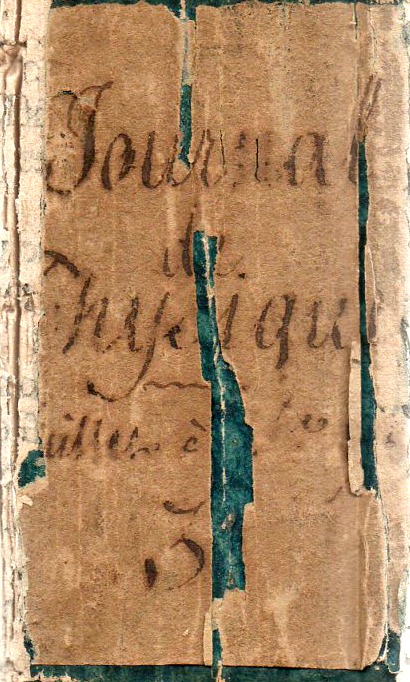 Journal
de
Physique
à
5